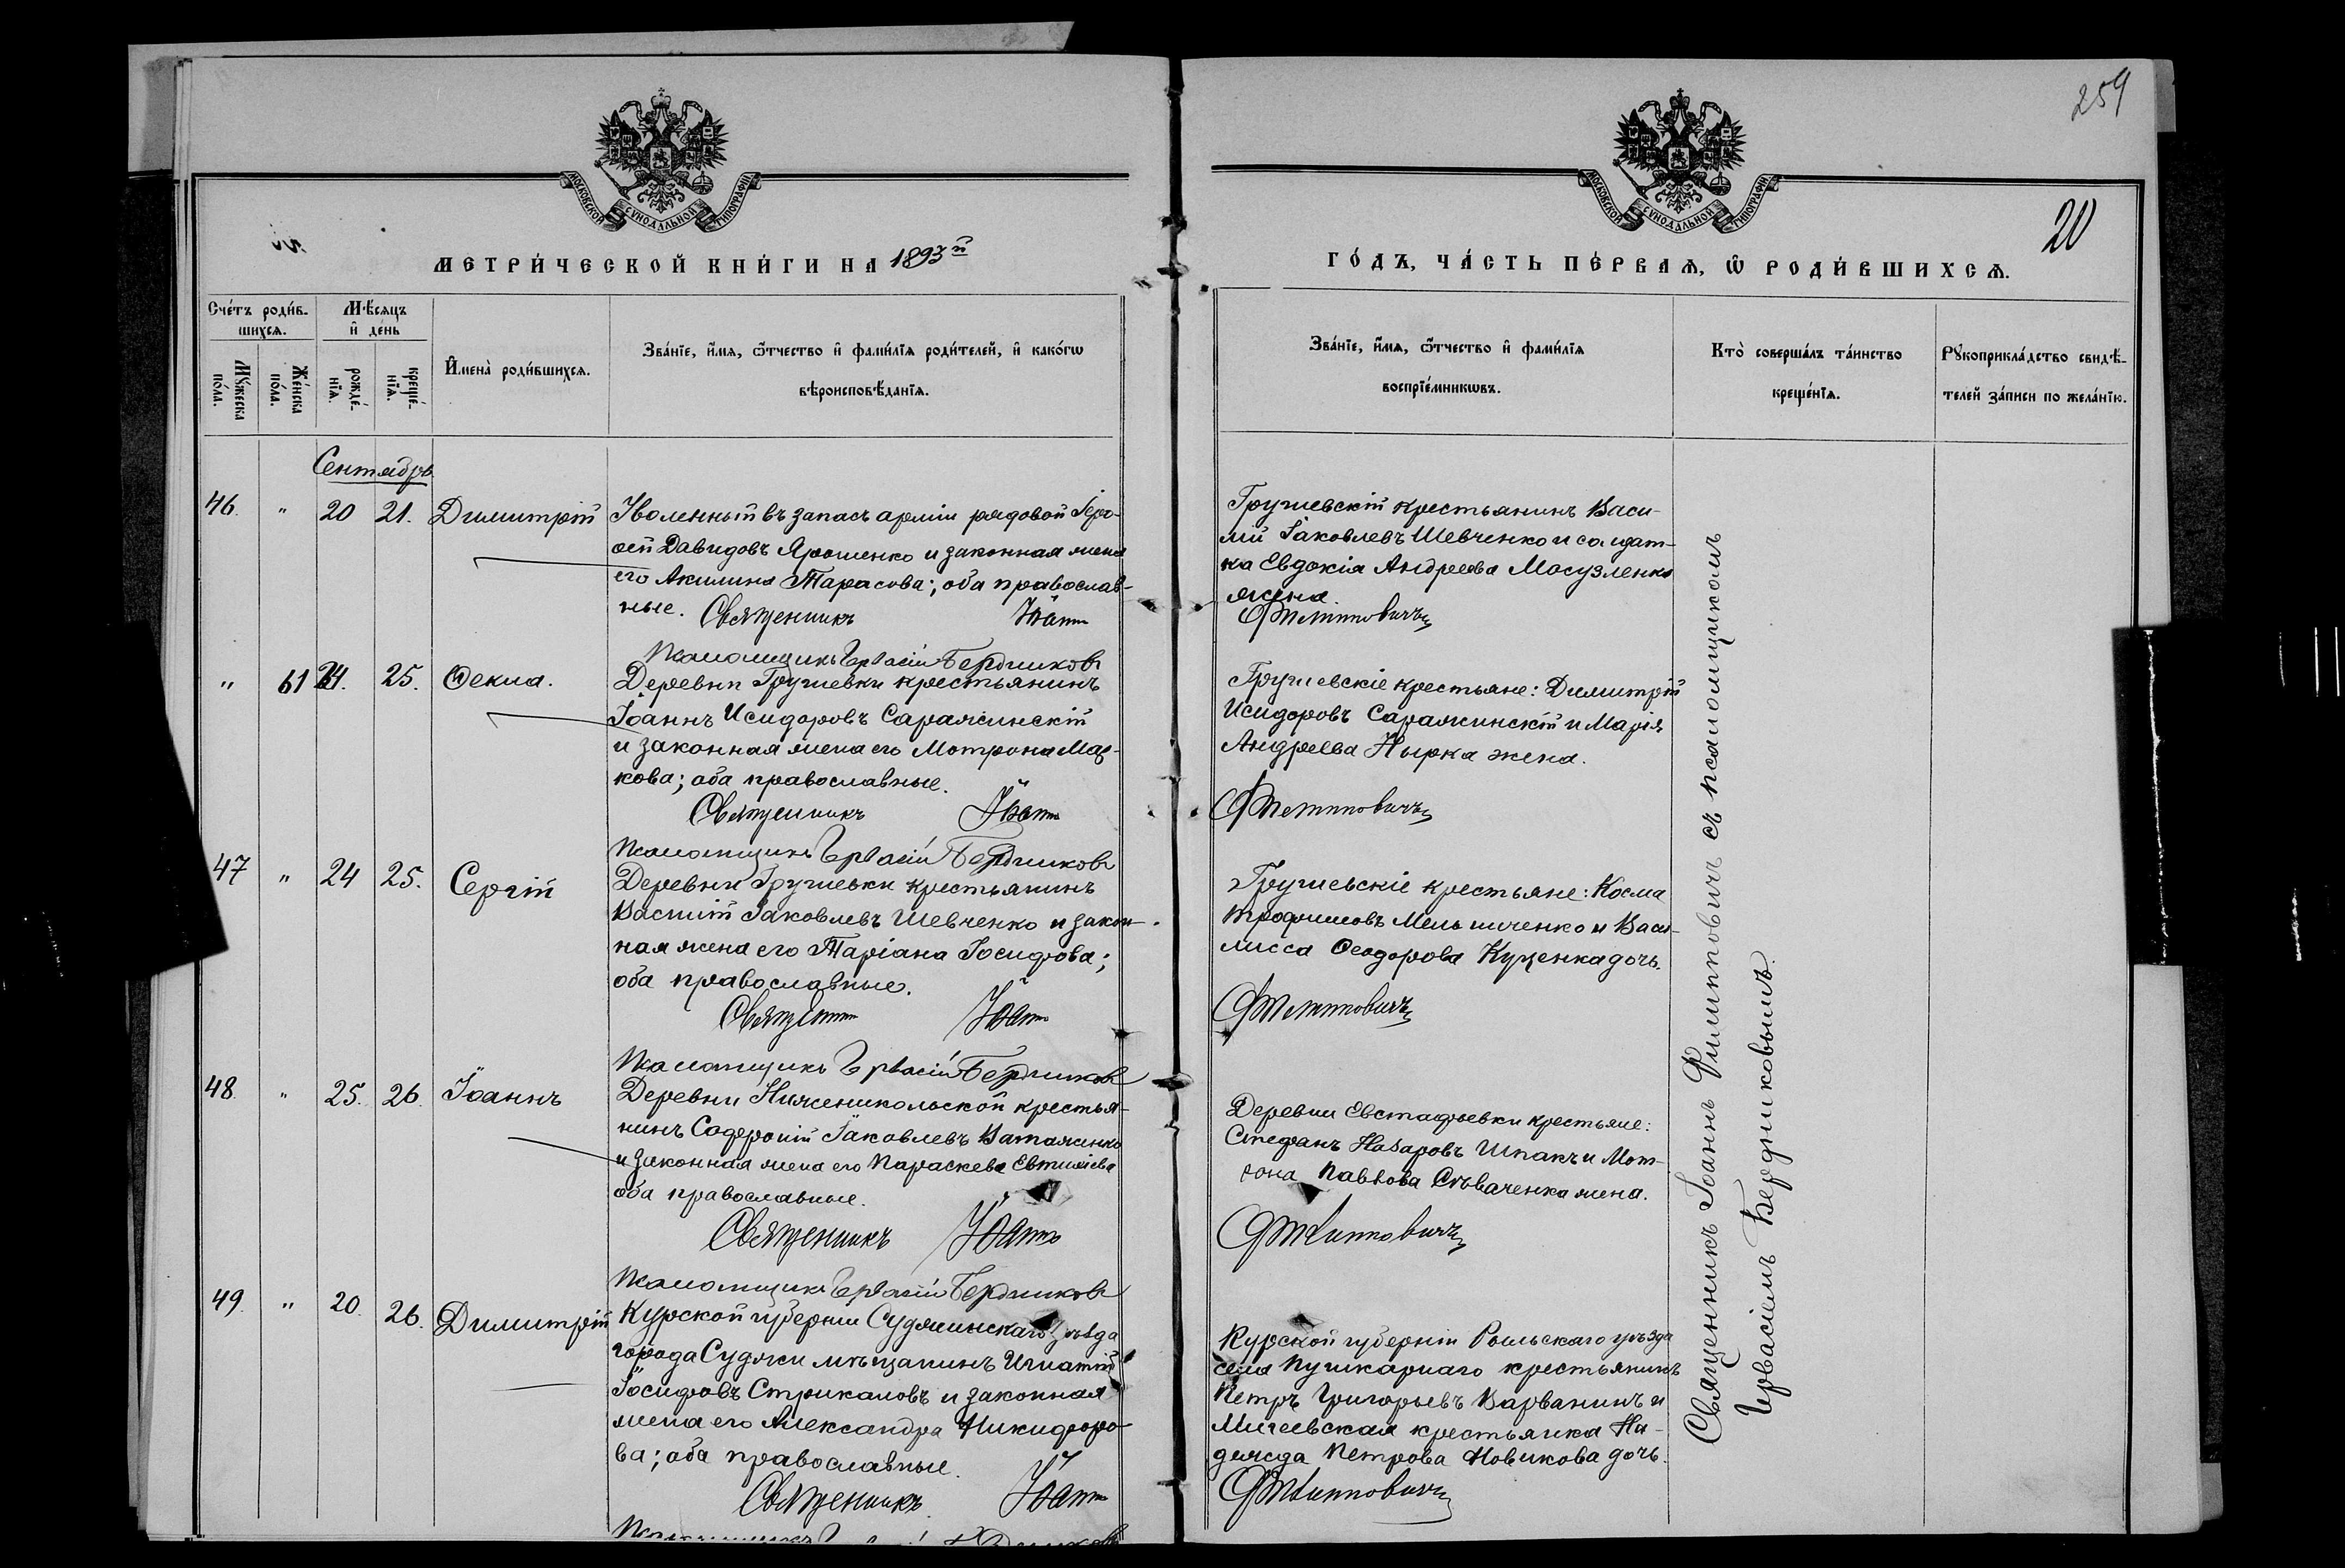 259
20
МОСКОВСКОЙ СѴНОДАЛЬНОЙ ТИПОГРАФІИ
МЕТРИ́ЧЕСКОЙ КНИ́ГИ НА 1893й
МОСКОВСКОЙ СѴНОДАЛЬНОЙ ТИПОГРАФІИ
ГО́ДЪ, ЧА́СТЬ ПЕ́РВАѦ, Ѡ҆ РОДИ́ВШИХСѦ.
Сче́тъ роди́в-
шихсѧ.
Мꙋ́жеска
по́ла.
Же́нска
по́ла.
Мѣ́сѧцъ
и҆ де́нь
рожде́-
нїѧ.
креще́-
нїѧ.
И҆мена̀ роди́вшихсѧ.
Зва́нїе, и҆́мѧ, ѻ҆́тчество и҆ фами́лїѧ роди́телей, и҆ како́гѡ
вѣроисповѣ́данїѧ.
Зва́нїе, и҆́мѧ, ѻ҆́тчество и҆ фами́лїѧ
воспрїе́мникѡвъ.
Кто̀ соверша́лъ та́инство
креще́нїѧ.
Рꙋкоприкла́дство свидѣ́-
телей за́писи по жела́нїю.
Сентябрь
46. " 20 21. Димитрій
Уволенный въ запасъ арміи рядовой Іеро-
ѳей Давидовъ Ярошенко и законная жена
его Акилина Тарасова; оба православ-
ные. Священникъ Іоаннъ
Грушевскій крестьянинъ Васи-
лій Іаковлевъ Шевченко и солдат-
ка Евдокія Андреева
жена.
Филипповичъ
Псаломщикъ Гервасій Бердниковъ
" 61 24. 25. Ѳекла.
Деревни Грушевки крестьянинъ
Іоаннъ Исидоровъ Саражинскій
и законная жена его Мотрона Мар-
кова; оба православные.
Священникъ Іоаннъ
Грушевскіе крестьяне: Димитрій
Исидоровъ Саражинскій и Марія
Андреева Нырка жена.
Филипповичъ
Псаломщикъ Гервасій Бердниковъ
47 " 24 25. Сергій
Деревни Грушевки крестьянинъ
Василій Іаковлевъ Шевченко и закон-
ная жена его Маріана Іосифова;
оба православные.
Священникъ Іоаннъ
Грушевскіе крестьяне: Косма
Трофимовъ Мельниченко и Васи-
лисса Ѳеодорова Куценка дочь.
Филипповичъ
Псаломщикъ Гервасій Бердниковъ
48. " 25. 26. Іоаннъ
Деревни Нижненикольской крестья-
нинъ Іаковлевъ Ватаженко
и законная жена его Параскева Евтихіева
оба православные.
Священникъ Іоаннъ
Деревни Евстафьевки крестьяне:
Стефанъ Назаровъ Шпакъ и Мот-
рона Павлова жена.
Филипповичъ
Псаломщикъ Гервасій Бердниковъ
49. " 20. 26. Димитрій
Курской губерніи Суджинскаго уѣзда
города Суджи мѣщанинъ Игнатій
Іосифовъ Стрикаловъ и законная
жена его Александра Никифоро-
ва; оба православные.
Священникъ Іоаннъ
Курской губерніи Рыльскаго уѣзда
села Пушкарнаго крестьянинъ
Петръ Григорьевъ Варванинъ и
крестьянка На-
дежда Петрова Новикова дочь.
Филипповичъ
Священникъ Іоаннъ Филипповичъ съ псаломщикомъ
Гервасіемъ Бердниковымъ.